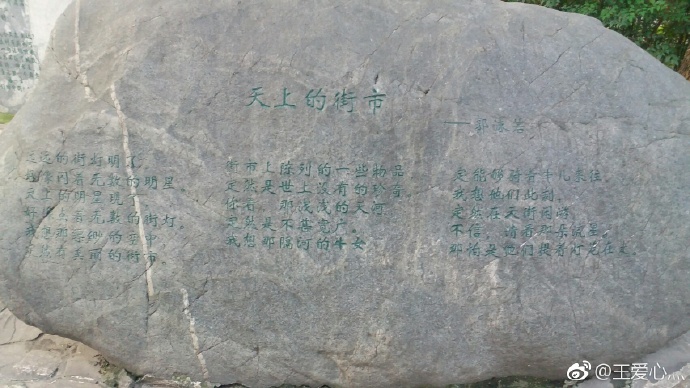 天上的街市
——郭沫若
远远的街灯明了,
好像闪着无数的明星。
天上的明星现了,
好像点着无数的街灯。
我想那缥缈的空中,
定然有美丽的街市。
街市上陈列的一些物品,
定然是世上没有的珍奇。
你看,那浅浅的天河,
定然是不甚宽广。
我想那隔河的牛女,
定能够骑着牛儿来往。
我想他们此刻,
定然在天街闲游。
不信,请看那朵流星,
那怕是他们提着灯笼在走。
@王爱心点